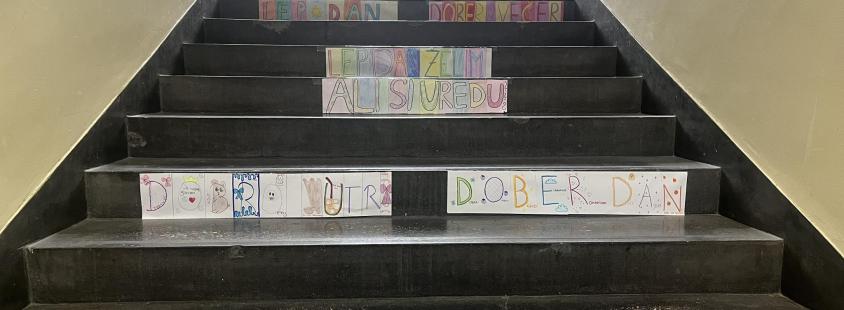 LEP DAN DOBER VEČER
LEP DAN ŽELIM
ALI SI V REDU
DOBRO JUTRO
DOBER DAN